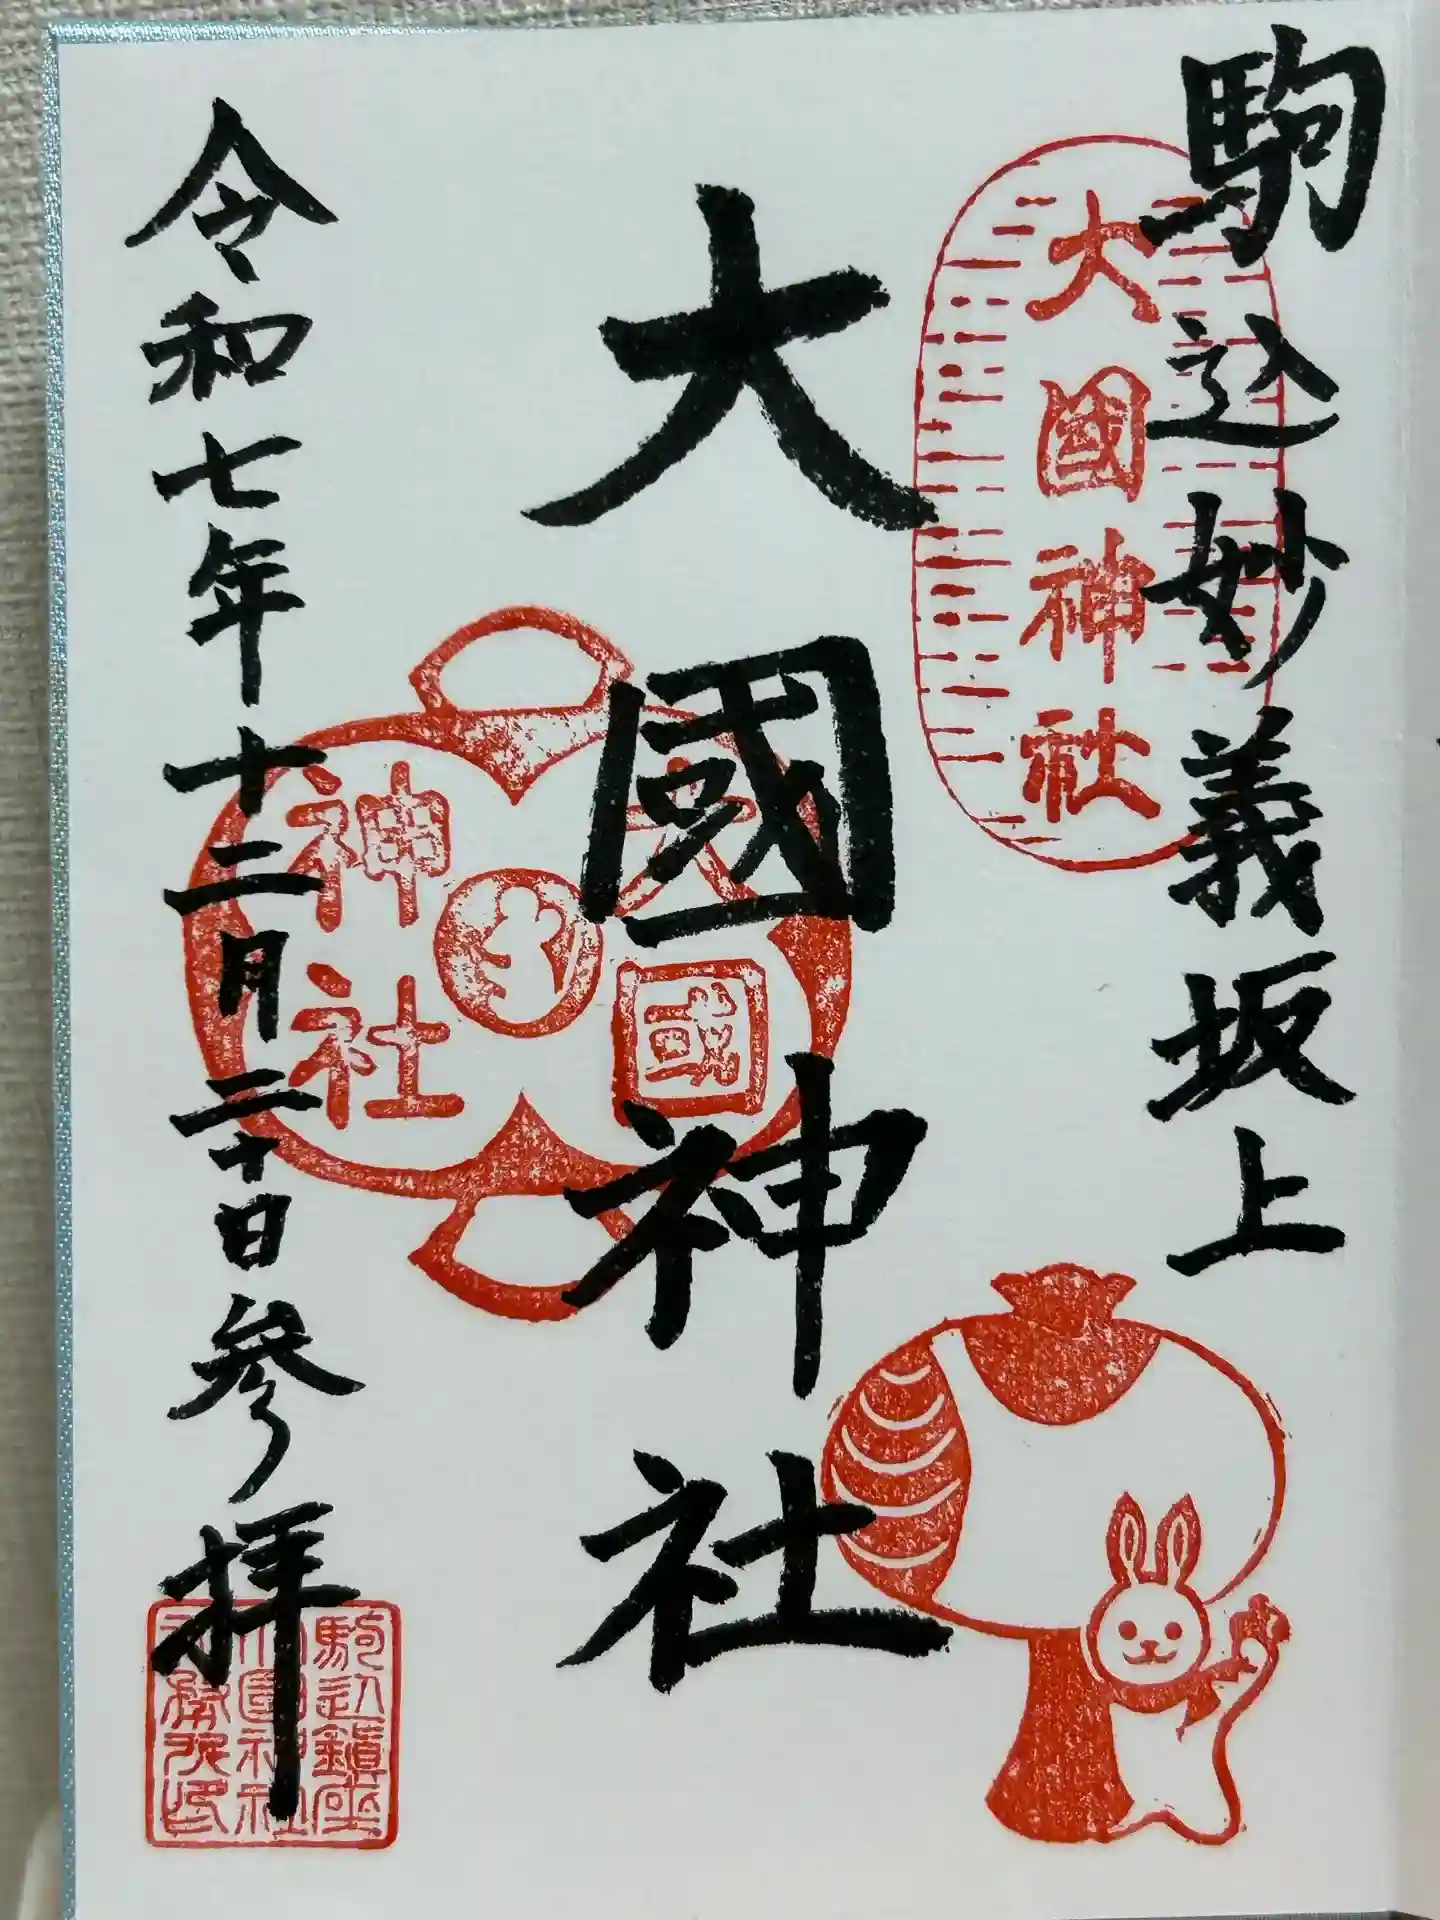 駒込妙義坂上
大國神社
大國神社
大國
神社
令和七年十二月二十日参拝
駒込鎮座
大國神社